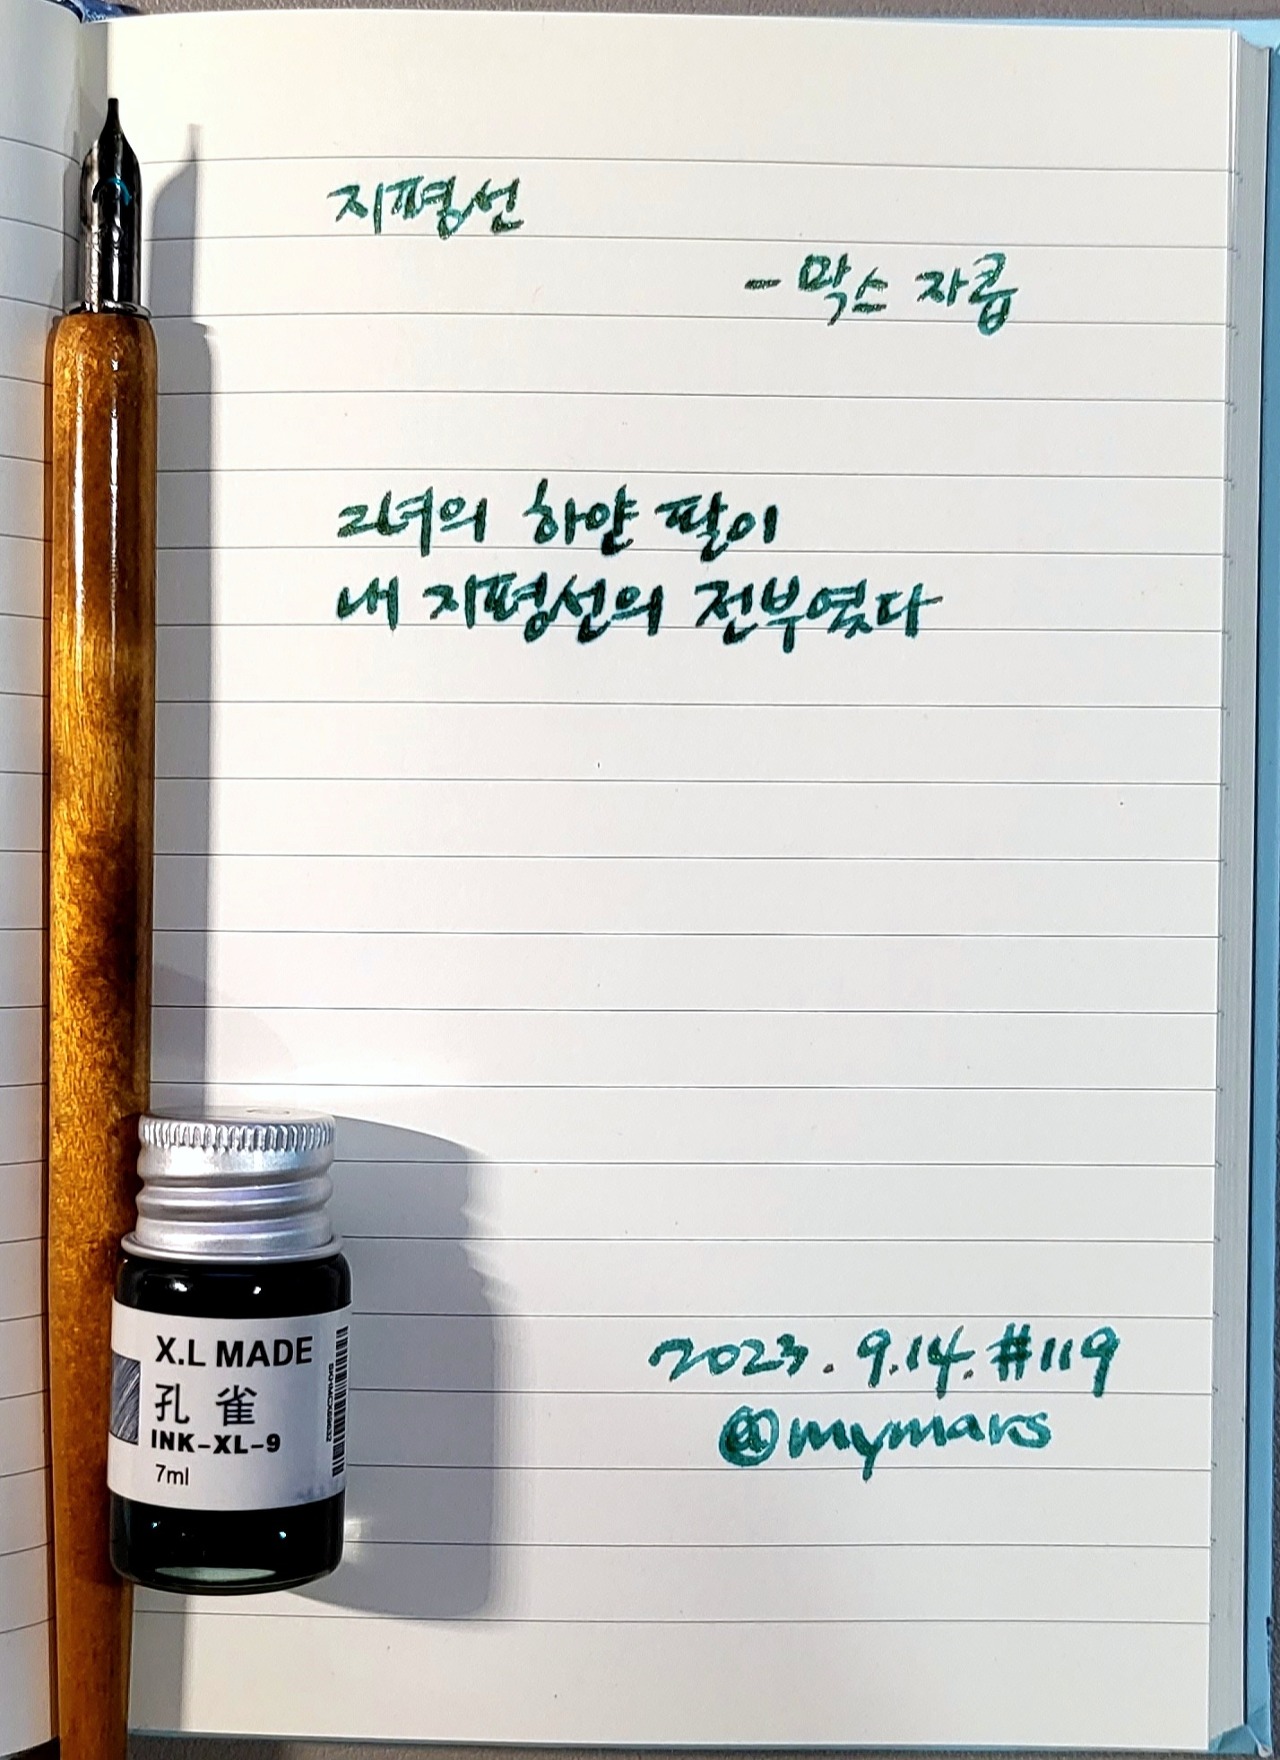 지평선
- 막스 자콥
그녀의 하얀 팔이
내 지평선의 전부였다
2023. 9.14. #119
@mymars
X.L MADE
孔雀
INK-XL-9
7ml